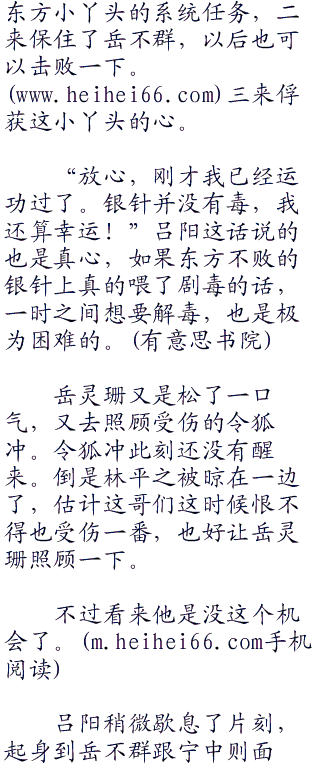 东方小丫头的系统任务，二
来保住了岳不群，以后也可
以击败一下。
(www.heihei66.com)三来俘
获这小丫头的心。
“放心，刚才我已经运
功过了。银针并没有毒，我
还算幸运！”吕阳这话说的
也是真心，如果东方不败的
银针上真的喂了剧毒的话，
一时之间想要解毒，也是极
为困难的。(有意思书院)
岳灵珊又是松了一口
气，又去照顾受伤的令狐
冲。令狐冲此刻还没有醒
来。倒是林平之被晾在一边
了，估计这哥们这时候恨不
得也受伤一番，也好让岳灵
珊照顾一下。
不过看来他是没这个机
会了。(m.heihei66.com手机
阅读)
吕阳稍微歇息了片刻，
起身到岳不群跟宁中则面